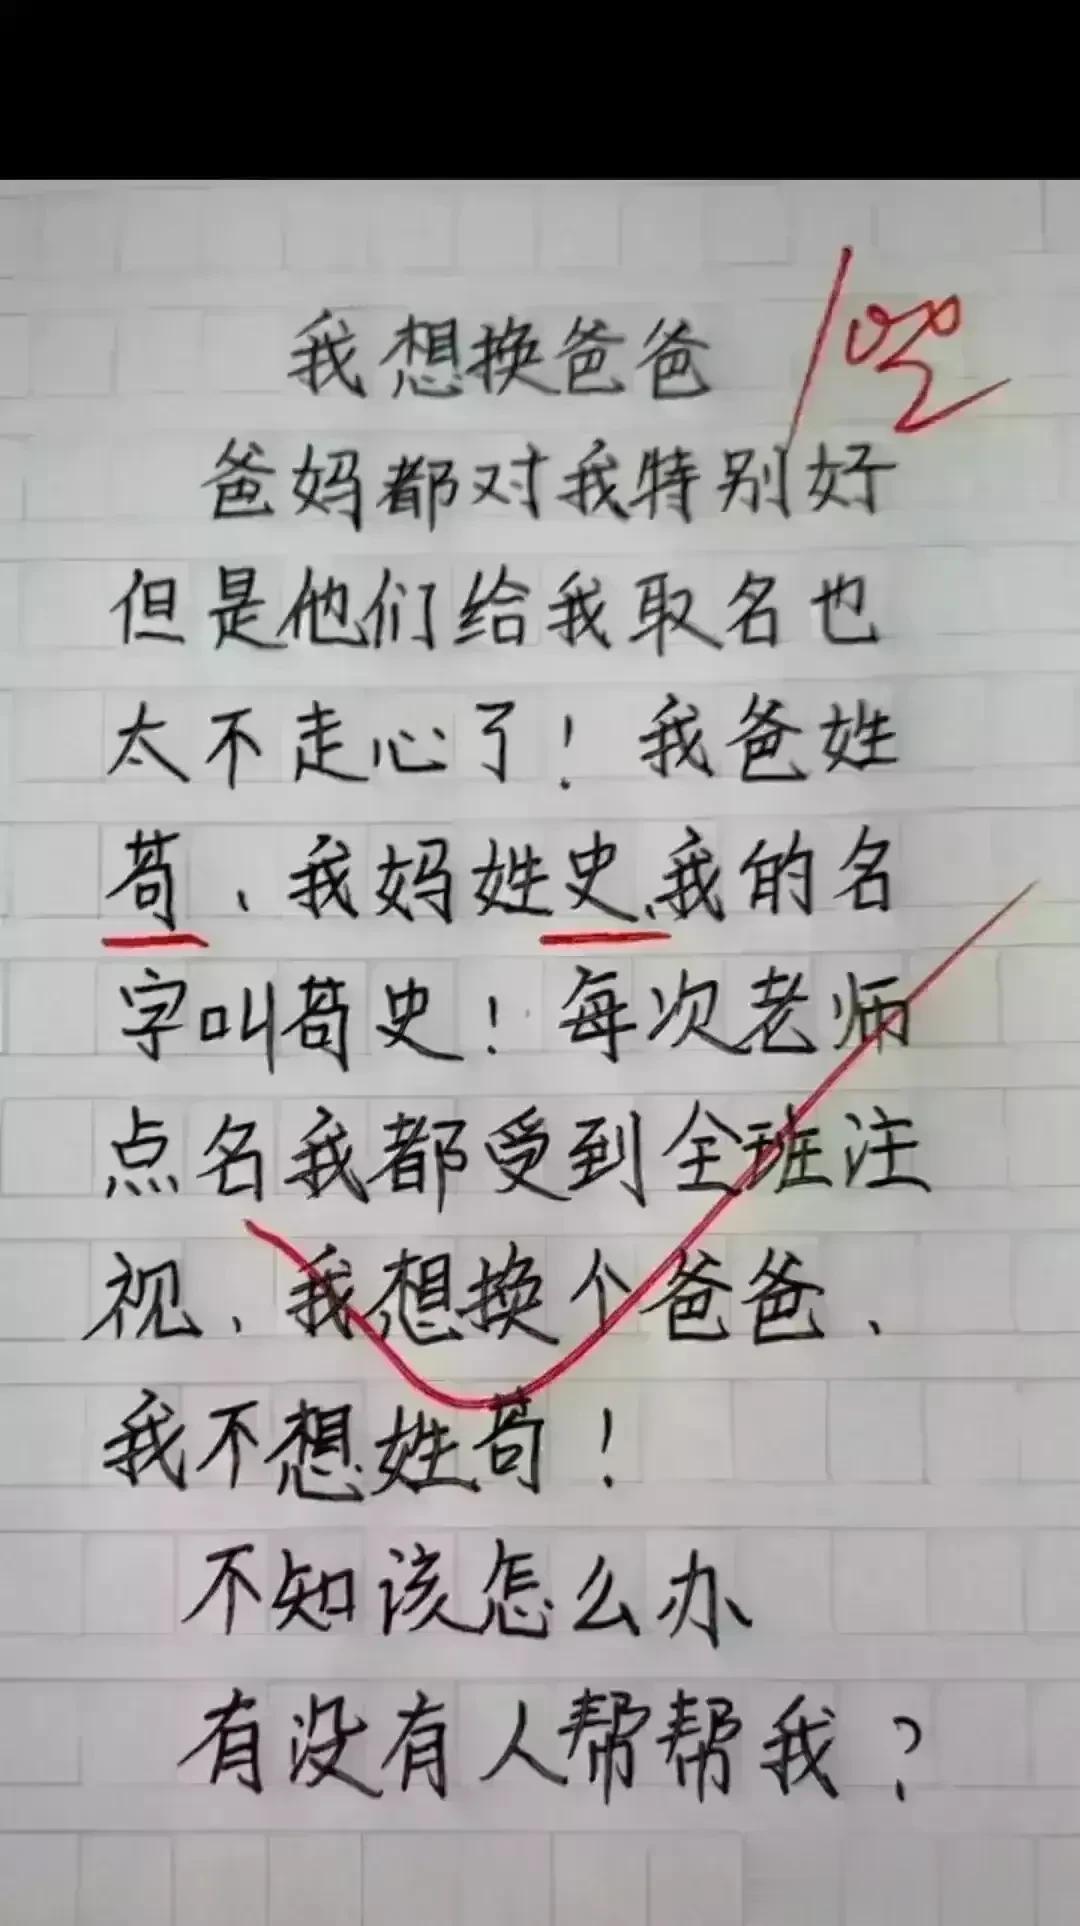 我想换爸爸
100
爸妈都对我特别好
但是他们给我取名也
太不走心了！我爸姓
苟、我妈姓史、我的名
字叫苟史！每次老师
点名我都受到全班注
视、我想换个爸爸、
我不想姓苟！
不知该怎么办
有没有人帮帮我？